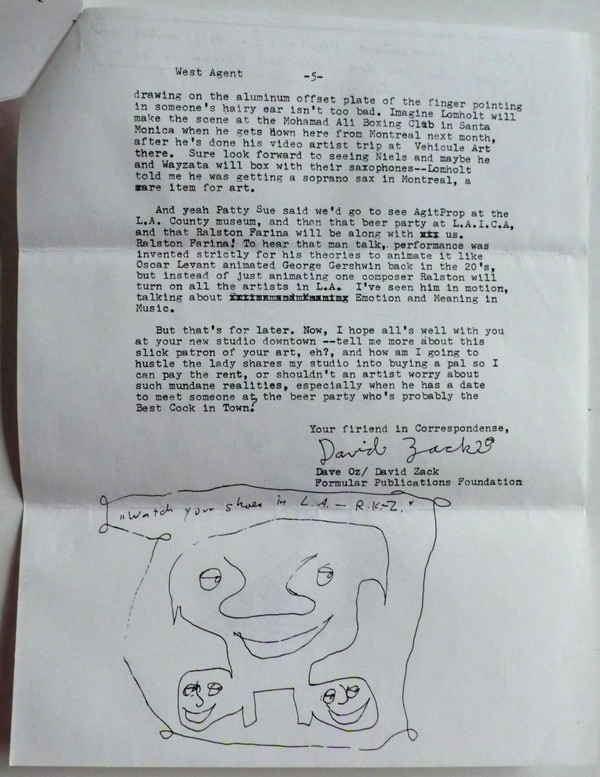 West Agent -5-
drawing on the aluminum offset plate of the finger pointing
in someone's hairy ear isn't too bad. Imagine Lomholt will
make the scene at the Mohamad Ali Boxing Club in Santa
Monica when he gets down here from Montreal next month,
after he's done his video artist trip at Vehicule Art
there. Sure look forward to seeing Niels and maybe he
and Wayzata will box with their saxophones--Lomholt
told me he was getting a soprano sax in Montreal, a
rare item for art.
And yeah Patty Sue said we'd go to see AgitProp at the
L.A. County museum, and then that beer party at L.A.I.C.A,
and that Ralston Farina will be along with us.
Ralston Farina! To hear that man talk, performance was
invented strictly for his theories to animate it like
Oscar Levant animated George Gershwin back in the 20's,
but instead of just animating one composer Ralston will
turn on all the artists in L.A. I've seen him in motion,
talking about Emotion and Meaning in
Music.
But that's for later. Now, I hope all's well with you
at your new studio downtown --tell me more about this
slick patron of your art, eh?, and how am I going to
hustle the lady shares my studio into buying a pal so I
can pay the rent, or shouldn't an artist worry about
such mundane realities, especially when he has a date
to meet someone at the beer party who's probably the
Best Cook in Town?
Your firiend in Correspondense,
David Zack
Dave Oz/ David Zack
Formular Publications Foundation
"Watch your shoes in L.A. — R.K-Z."